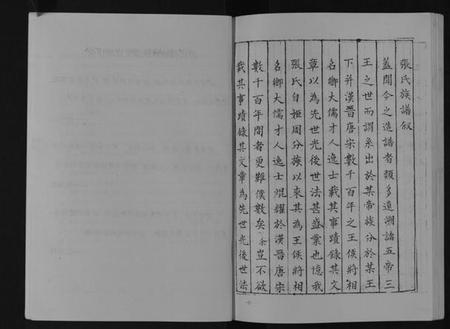 張氏族譜叙
蓋聞今之造譜者類多遠溯諸五帝三
王之世而謂系出於某帝族分於某王
下并漢晉唐宋數千百年之王侯將相
名卿大儒才人逸士載其事蹟錄其文
章以為先世光後世法甚盛業也憶我
張氏自姬周分族以來其為王侯將相
名卿大儒才人逸士焜耀於漢晉唐宋
數千百年間者更難僕數矣余豈不欲
載其事蹟錄其文章為先世光後世法